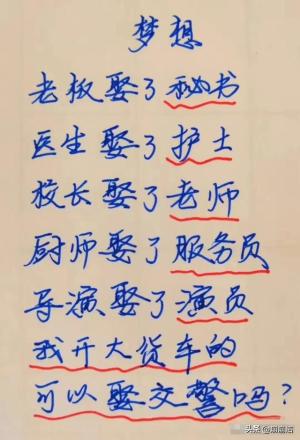 梦想
老板娶了秘书
医生娶了护士
校长娶了老师
厨师娶了服务员
导演娶了演员
我开大货车的
可以娶交警吗？